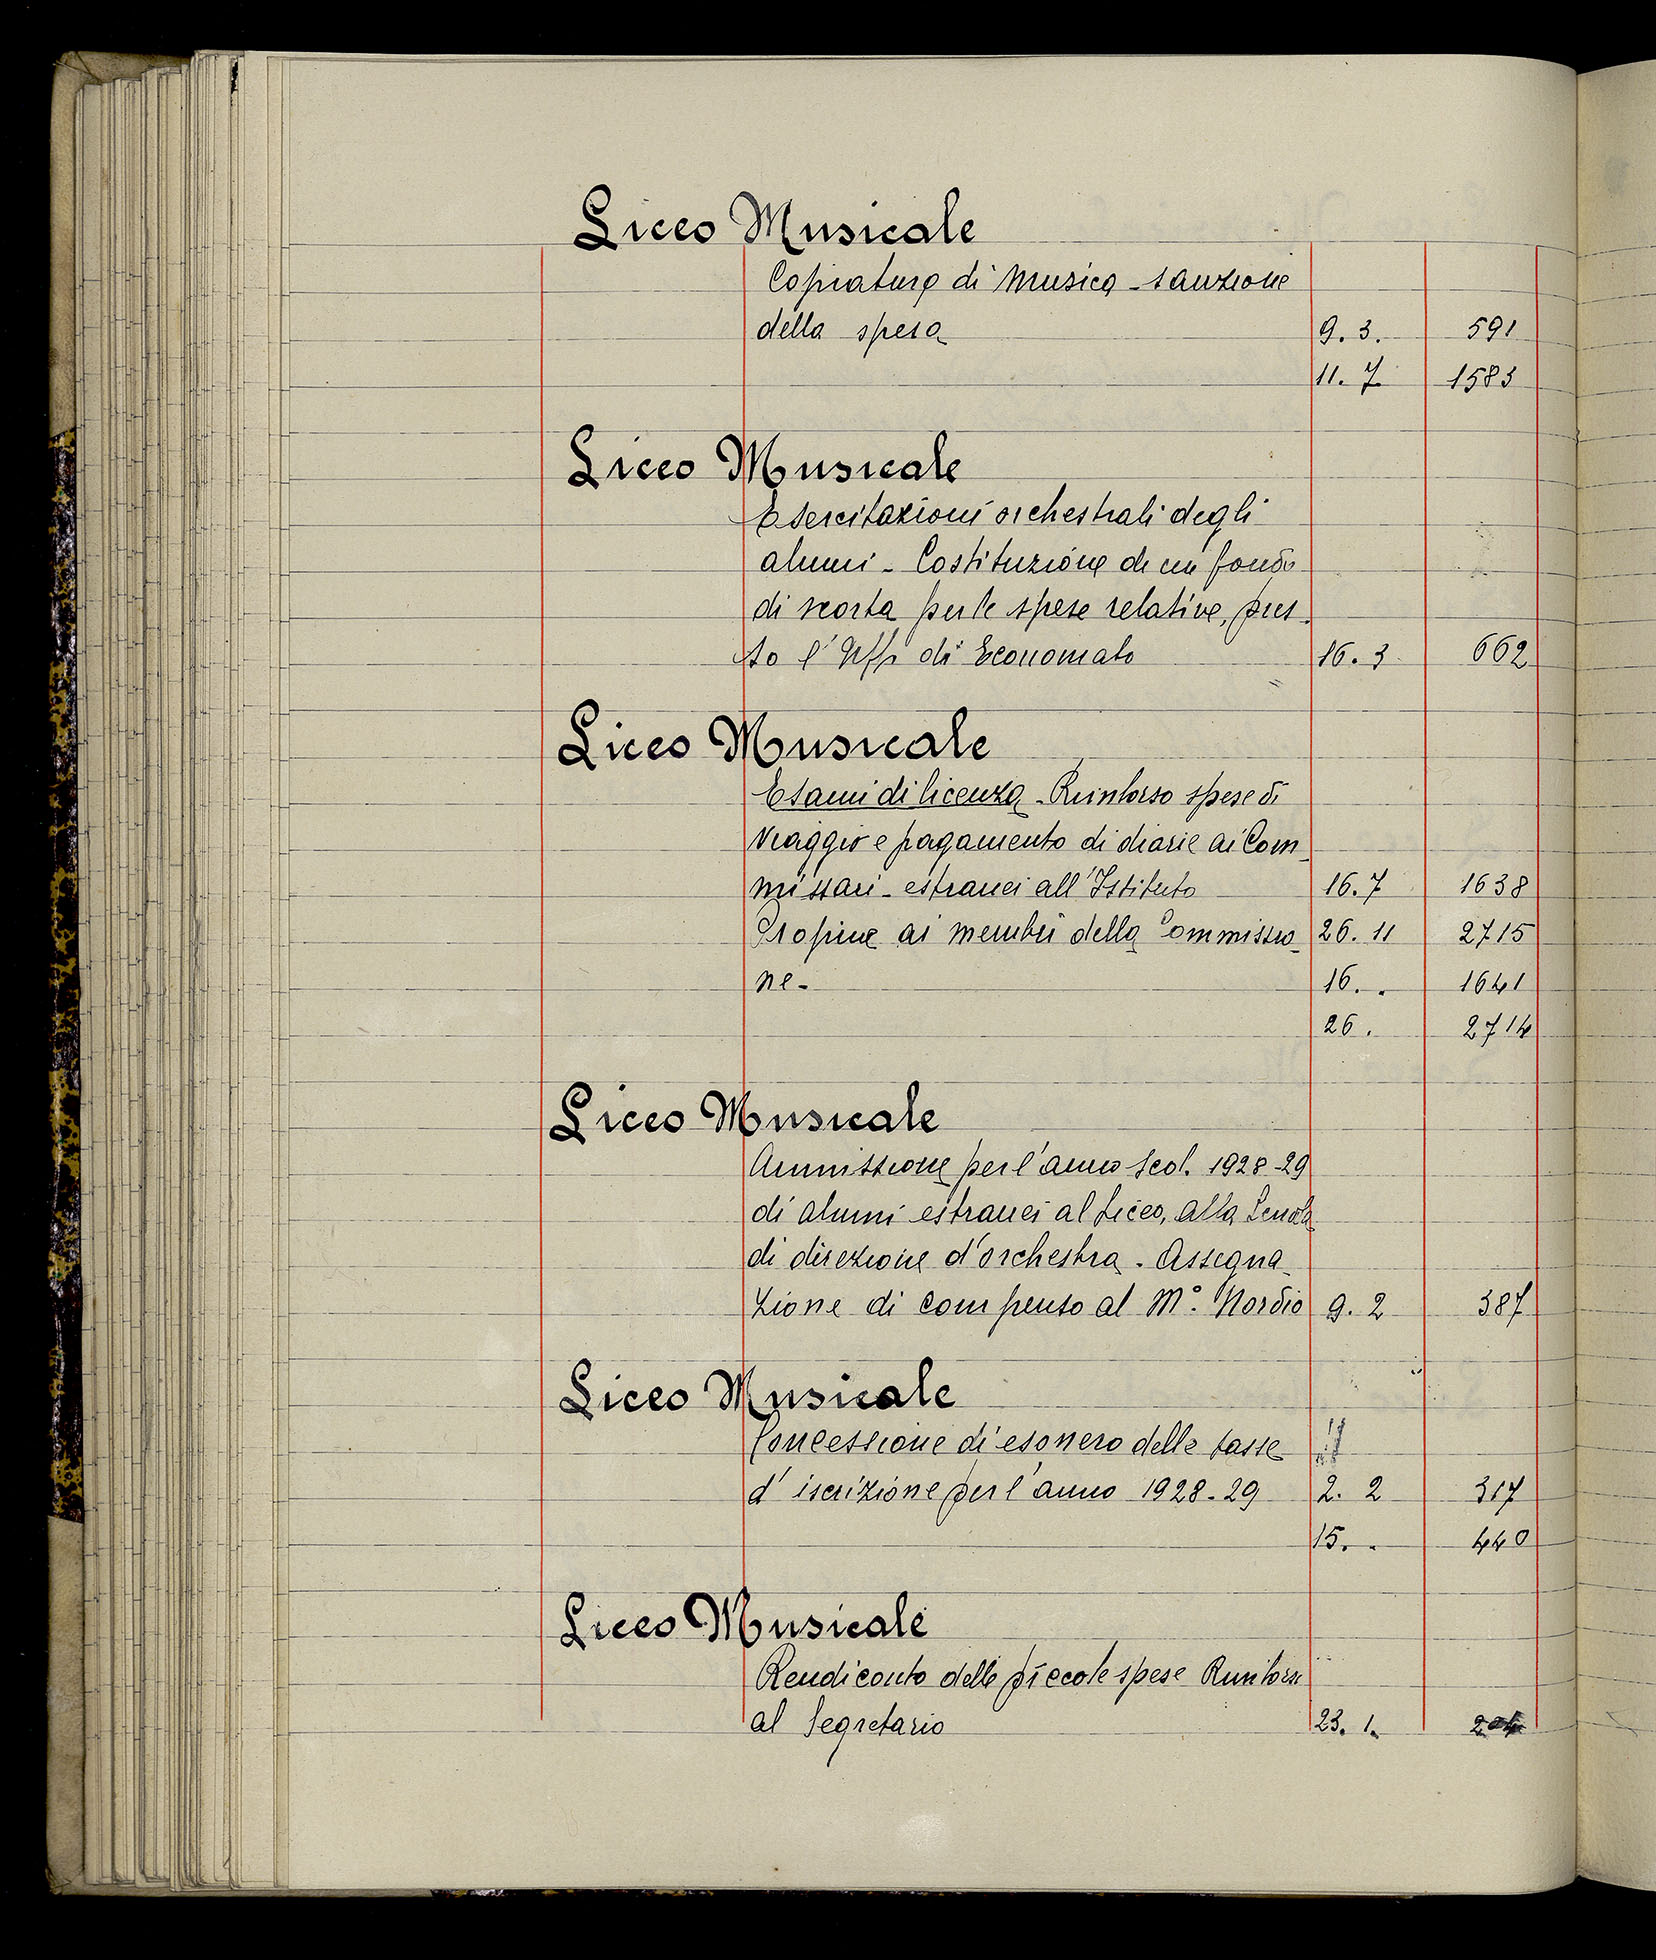 Liceo Musicale
Copiatura di Musica - sanzione
della spesa 9. 3. 591
11. 7. 1583
Liceo Musicale
Esercitazioni orchestrali degli
alunni - Costituzione di un fondo
di scorta per le spese relative, pres-
so l'Uff. di Economato 16. 3 662
Liceo Musicale
Esami di licenza - Rimborso spese di
viaggio e pagamento di diarie ai Com-
missari estranei all'Istituto 16. 7 1638
Propine ai membri della Commissio- 26. 11 2715
ne - 16. . 1641
26. 2714
Liceo Musicale
Ammissione per l'anno scol. 1928-29
di alunni estranei al Liceo, alla Scuola
di direzione d'orchestra. Assegna-
zione di compenso al M°. Nordio 9. 2 387
Liceo Musicale
Concessione di esonero delle tasse
d'iscrizione per l'anno 1928-29 2. 2 317
15. . 440
Liceo Musicale
Rendiconto delle piccole spese Rimborso
al Segretario 23. 1.